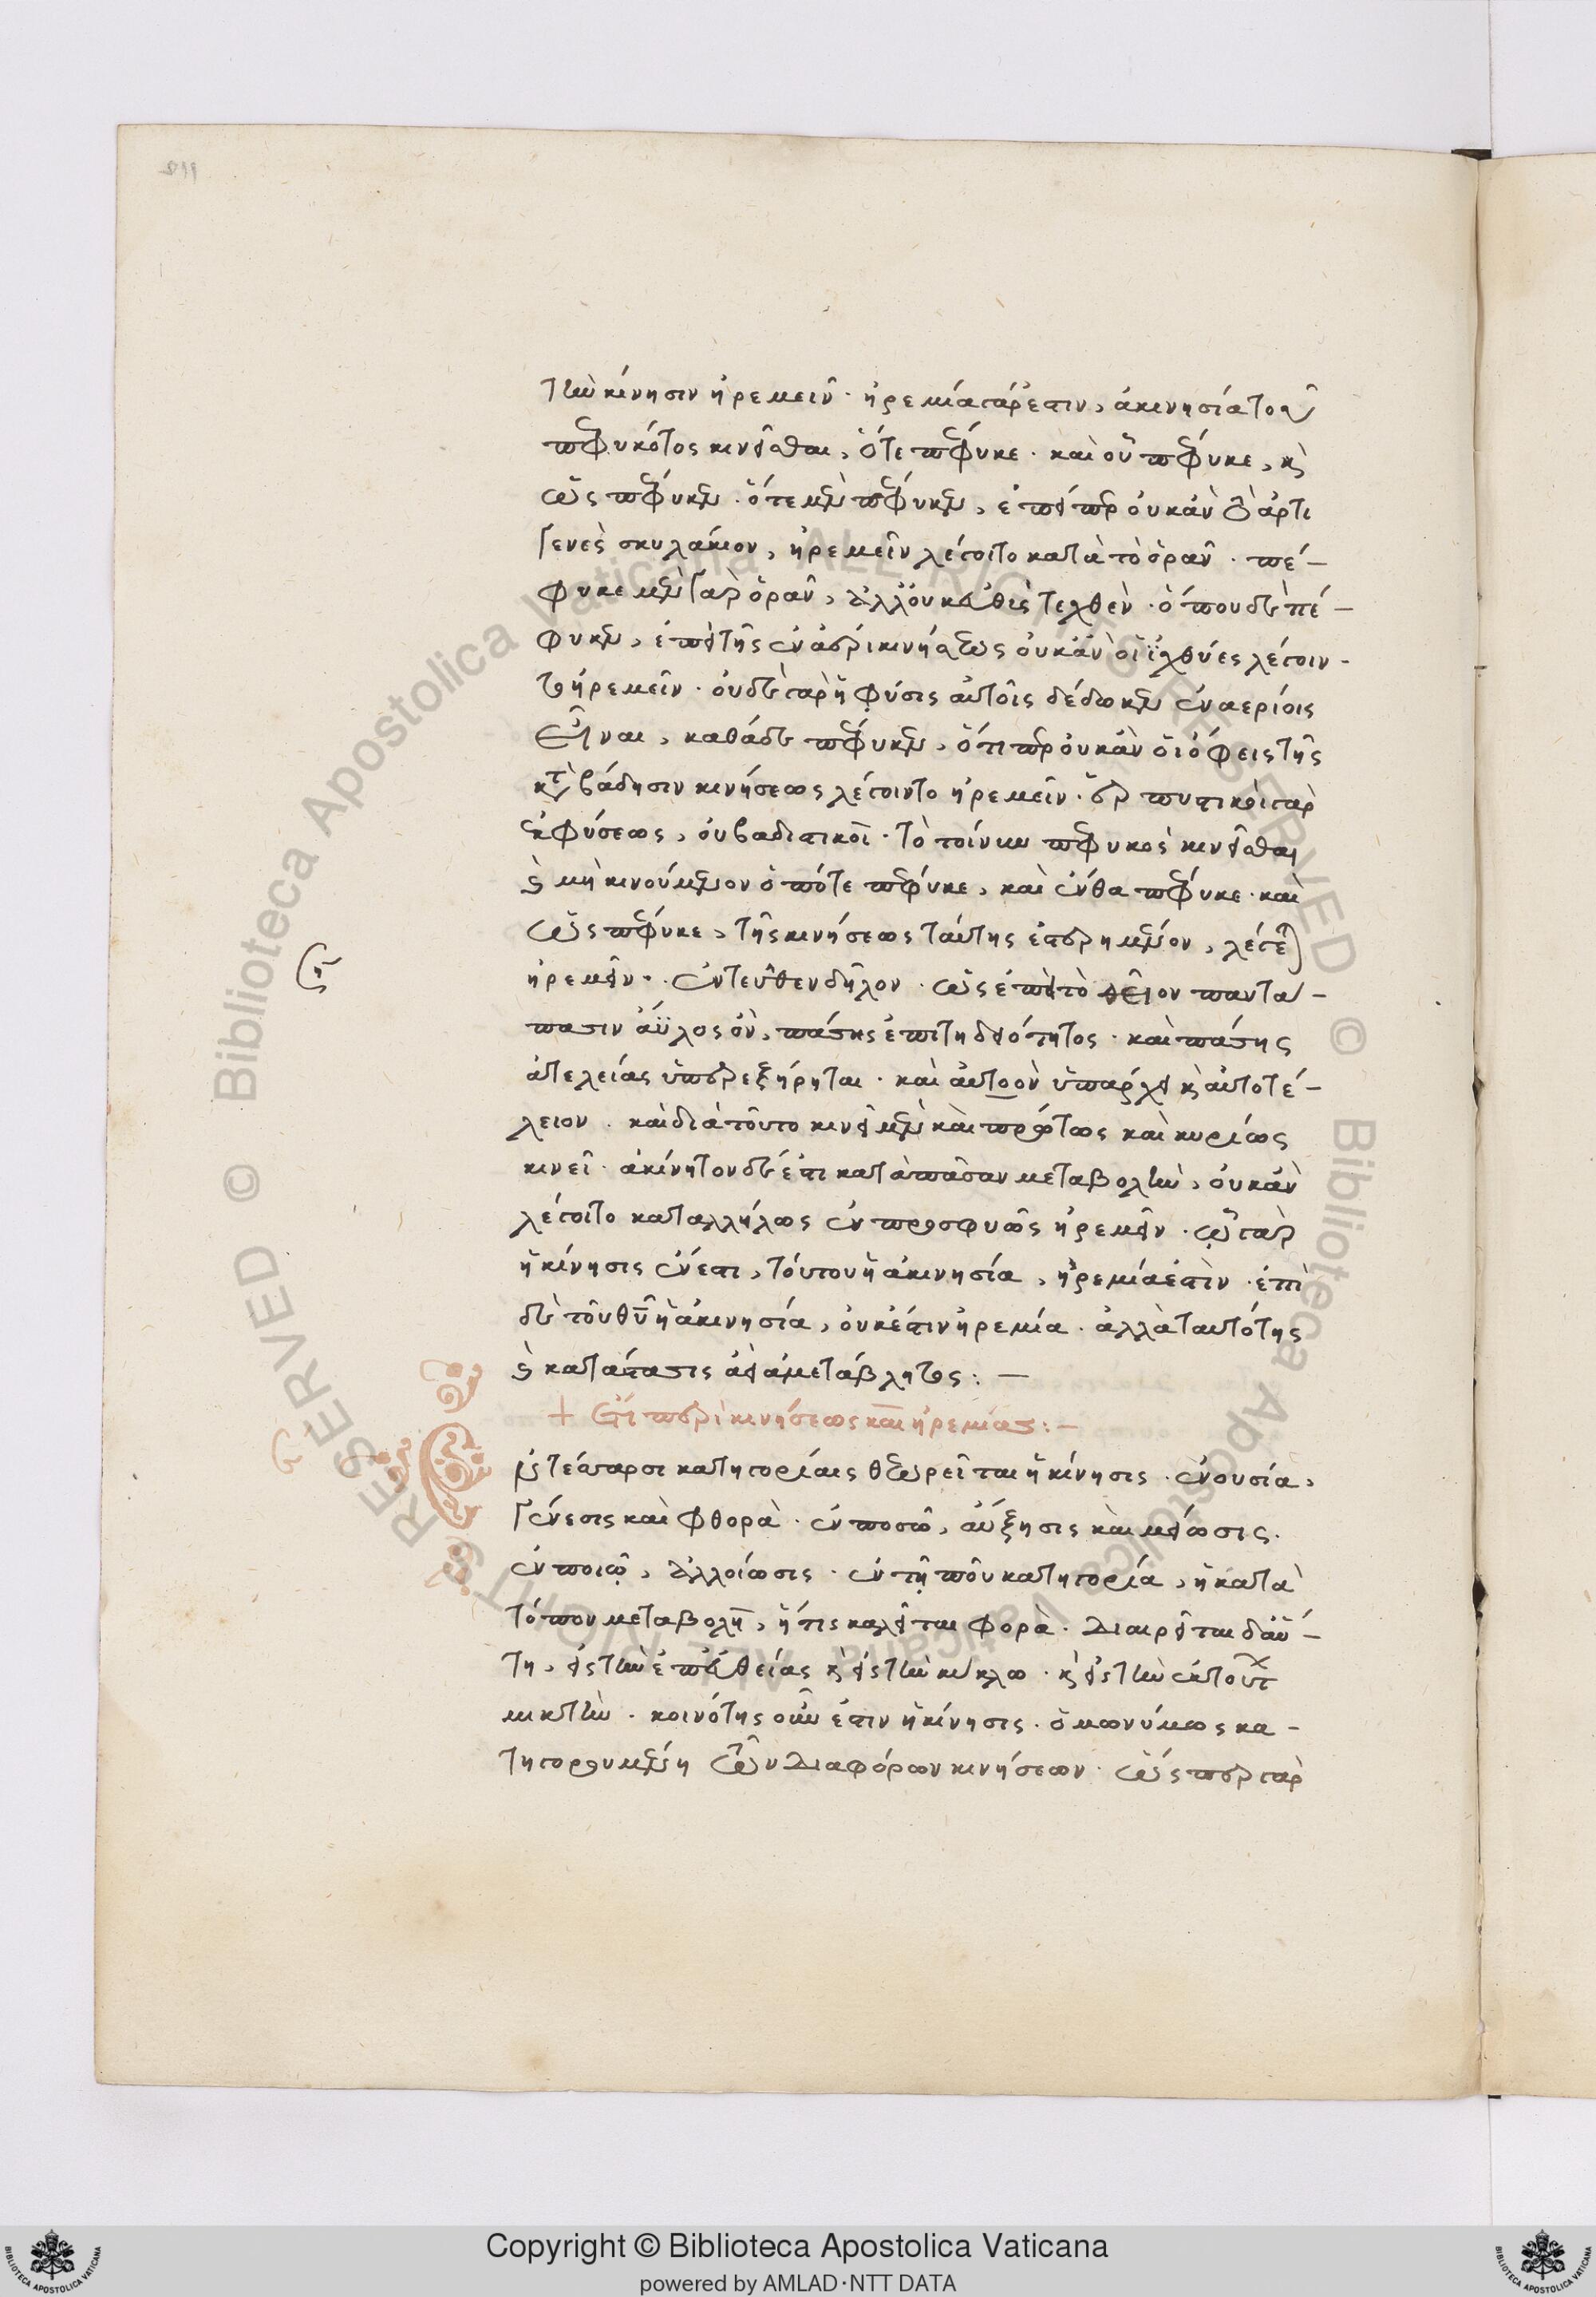 τὴν κίνησιν ἠρεμεῖν· ἠρεμία γάρ ἐστιν, ἀκινησία τοῦ
πεφυκότος κινεῖσθαι, ὅτε πέφυκε· καὶ οὗ πέφυκε, καὶ
ὡς πέφυκεν· ὅτε μὲν πέφυκεν, ἐπείπερ οὐκ ἂν τὸ ἀρτι
γενὲς σκυλάκιον, ἠρεμεῖν λέγοιτο κατὰ τὸ ὁρᾶν· πέ-
φυκε μὲν γὰρ ὁρᾶν, ἀλλ' οὐκ εὐθὺς τεχθὲν· ὅπου δὲ πέ-
φυκεν, ἐπεὶ τῆς ἐν ἀέρι κινήσεως οὐκ ἂν οἱ ἰχθύες λέγοιν-
το ἠρεμεῖν· οὐδὲ γὰρ ἡ φύσις αὐτοῖς δέδωκεν ἐναερίοις
εἶναι, καθὰ δὲ πέφυκεν, ὅτιπερ οὐκ ἂν οἱ ὄφεις τῆς
κατὰ βάδησιν κινήσεως λέγοιντο ἠρεμεῖν· ἑρπυστικοὶ γὰρ
ἐκ φύσεως, οὐ βαδιστικοί· τὸ τοίνυν πεφυκὸς κινεῖσθαι
καὶ μὴ κινούμενον ὁπότε πέφυκε, καὶ ἔνθα πέφυκε· καὶ
ὡς πέφυκε, τῆς κινήσεως ταύτης ἐστερημένον, λέγεται
ἠρεμεῖν·. ἐντεῦθεν δῆλον· ὡς ἐπεὶ τὸ θεῖον παντά-
πασιν ἄϋλος ὂν, πάσης ἐπιτηδειότητος· καὶ πάσης
ἀτελείας ὑπερεξήρηται· καὶ αὐτοὸν ὑπάρχει καὶ αὐτοτέ-
λειον· καὶ διὰ τοῦτο κινεῖ μὲν καὶ πρώτως καὶ κυρίως
κινεῖ· ἀκίνητον δέ ἐστι κατὰ πᾶσαν μεταβολὴν, οὐκ ἂν
λέγοιτο καταλλήλως ἐν προσφυῶς ἠρεμεῖν· ᾧ γὰρ
ἡ κίνησις ἔνεστι, τούτου ἡ ἀκινησία, ἠρεμία ἐστὶν· ἐπὶ
δὲ τοῦ θυ ἡ ἀκινησία, οὐκ ἔστιν ἠρεμία· ἀλλὰ ταυτότης
καὶ κατάστασις ἀεὶ ἀμετάβλητος: —
+ Ἔτι περὶ κινήσεως καὶ ἠρεμίας: —
Ἐν τέσσαρσι κατηγορίαις θεωρεῖται ἡ κίνησις· ἐν οὐσία,
γένεσις καὶ φθορὰ· ἐν ποσῶ, αὔξησις καὶ μείωσις·
ἐν ποιῷ, ἀλλοίωσις· ἐν τῇ ποῦ κατηγορία, ἡ κατὰ
τόπον μεταβολή, ἥτις καλεῖται φορὰ· διαιρεῖται δ' αὕ-
τη, εἰς τὴν ἐπ' εὐθείας καὶ εἰς τὴν κύκλω· καὶ εἰς τὴν ἐκ τούτων
μικτὴν· κοινότης οὖν ἐστιν ἡ κίνησις· ὁμωνύμως κα-
τηγορουμένη τῶν διαφόρων κινήσεων· ὥσπερ γὰρ